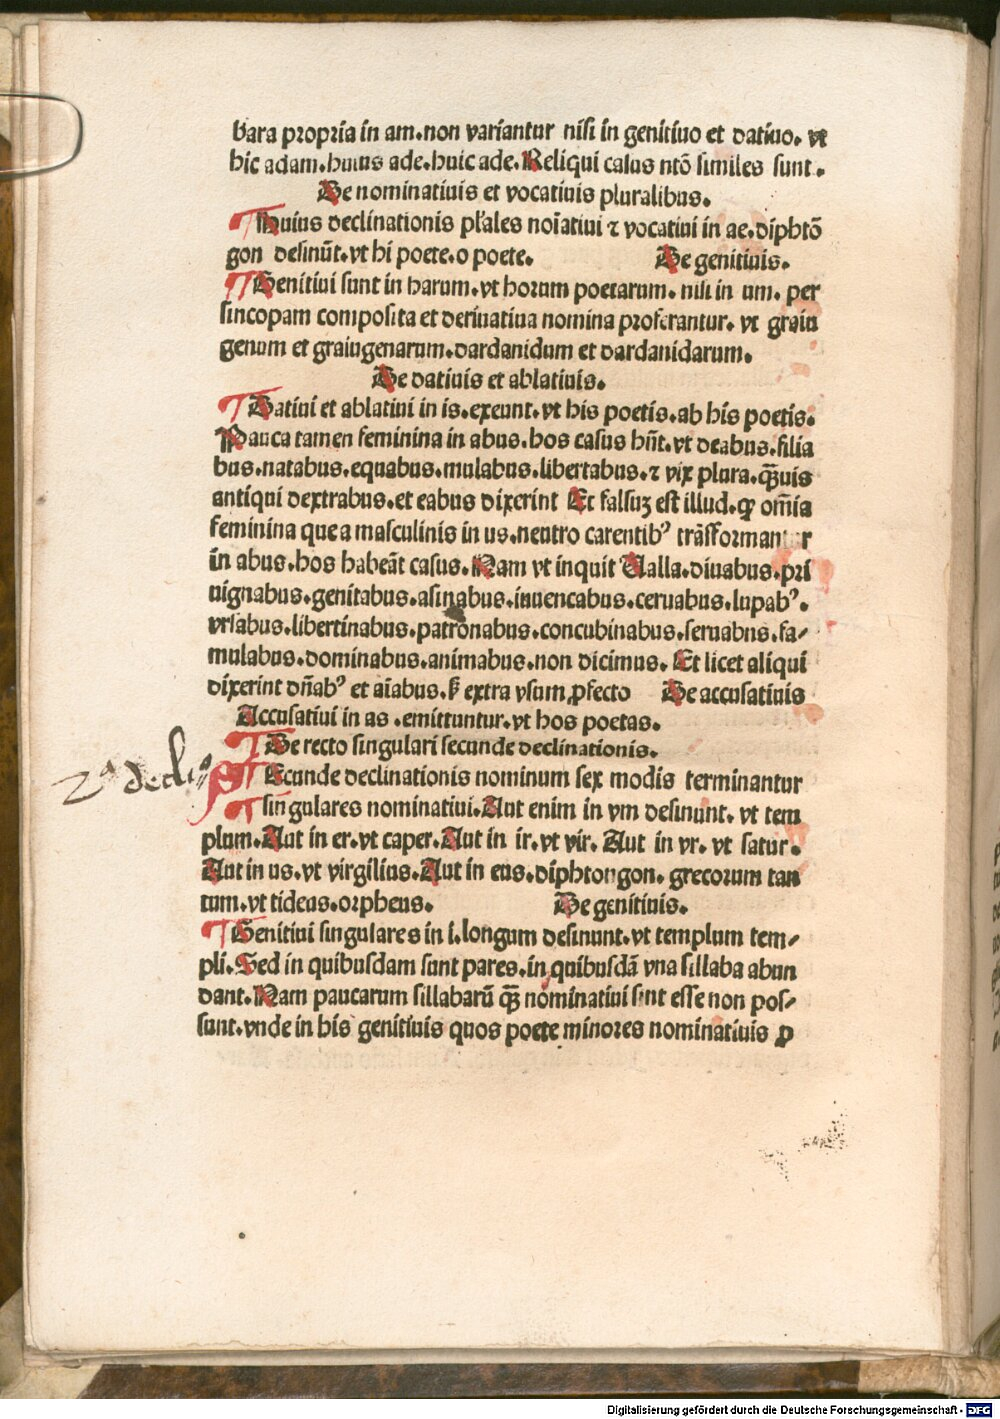 bara propria in am.non variantur nisi in genitiuo et datiuo. vt
hic adam.huius ade.huic ade.Reliqui casus ntō similes sunt.
De nominatiuis et vocatiuis pluralibus.
Huius declinationis pl'ales noīatiui ⁊ vocatiui in ae.diphtō
gon desinūt.vt hi poete.o poete.     De genitiuis.
Genitiui sunt in harum.vt horum poetarum. nisi in um. per
sincopam composita et deriuatiua nomina proferantur. vt graiu
genum et graiugenarum.dardanidum et dardanidarum.
De datiuis et ablatiuis.
Datiui et ablatiui in is.exeunt.vt his poetis.ab his poetis.
Pauca tamen feminina in abus.hos casus hn̄t.vt deabus.filia
bus.natabus.equabus.mulabus.libertabus.⁊ vix plura.qȝuis
antiqui dextrabus.et eabus dixerint Et falsuȝ est illud.ꝙ om̄ia
feminina que a masculinis in us.neutro carentibꝰ trāsformantur
in abus.hos habeāt casus.Nam vt inquit Valla.diuabus.pri
uignabus.genitabus.asinabus.iuuencabus.ceruabus.lupabꝰ.
vrsabus.libertinabus.patronabus.concubinabus.seruabus.fa⸗
mulabus.dominabus.animabus.non dicimus. Et licet aliqui
dixerint dn̄abꝰ et aīabus.ꝭ extra vsum ꝓfecto     De accusatiuis
Accusatiui in as .emittuntur.vt hos poetas.
De recto singulari secunde declinationis.
2ᵃ decli
SEcunde declinationis nominum sex modis terminantur
singulares nominatiui.Aut enim in vm desinunt. vt tem
plum.Aut in er.vt caper.Aut in ir.vt vir. Aut in vr. vt satur.
Aut in us.vt virgilius.Aut in eus.diphtongon. grecorum tan
tum.vt tideus.orpheus.     De genitiuis.
Genitiui singulares in i.longum desinunt.vt templum tem⸗
pli.Sed in quibusdam sunt pares.in quibusdā vna sillaba abun
dant.Nam paucarum sillabarū qȝ nominatiui sint esse non pos⸗
sunt.vnde in his genitiuis quos poete minores nominatiuis ꝓ
Digitalisierung gefördert durch die Deutsche Forschungsgemeinschaft - DFG